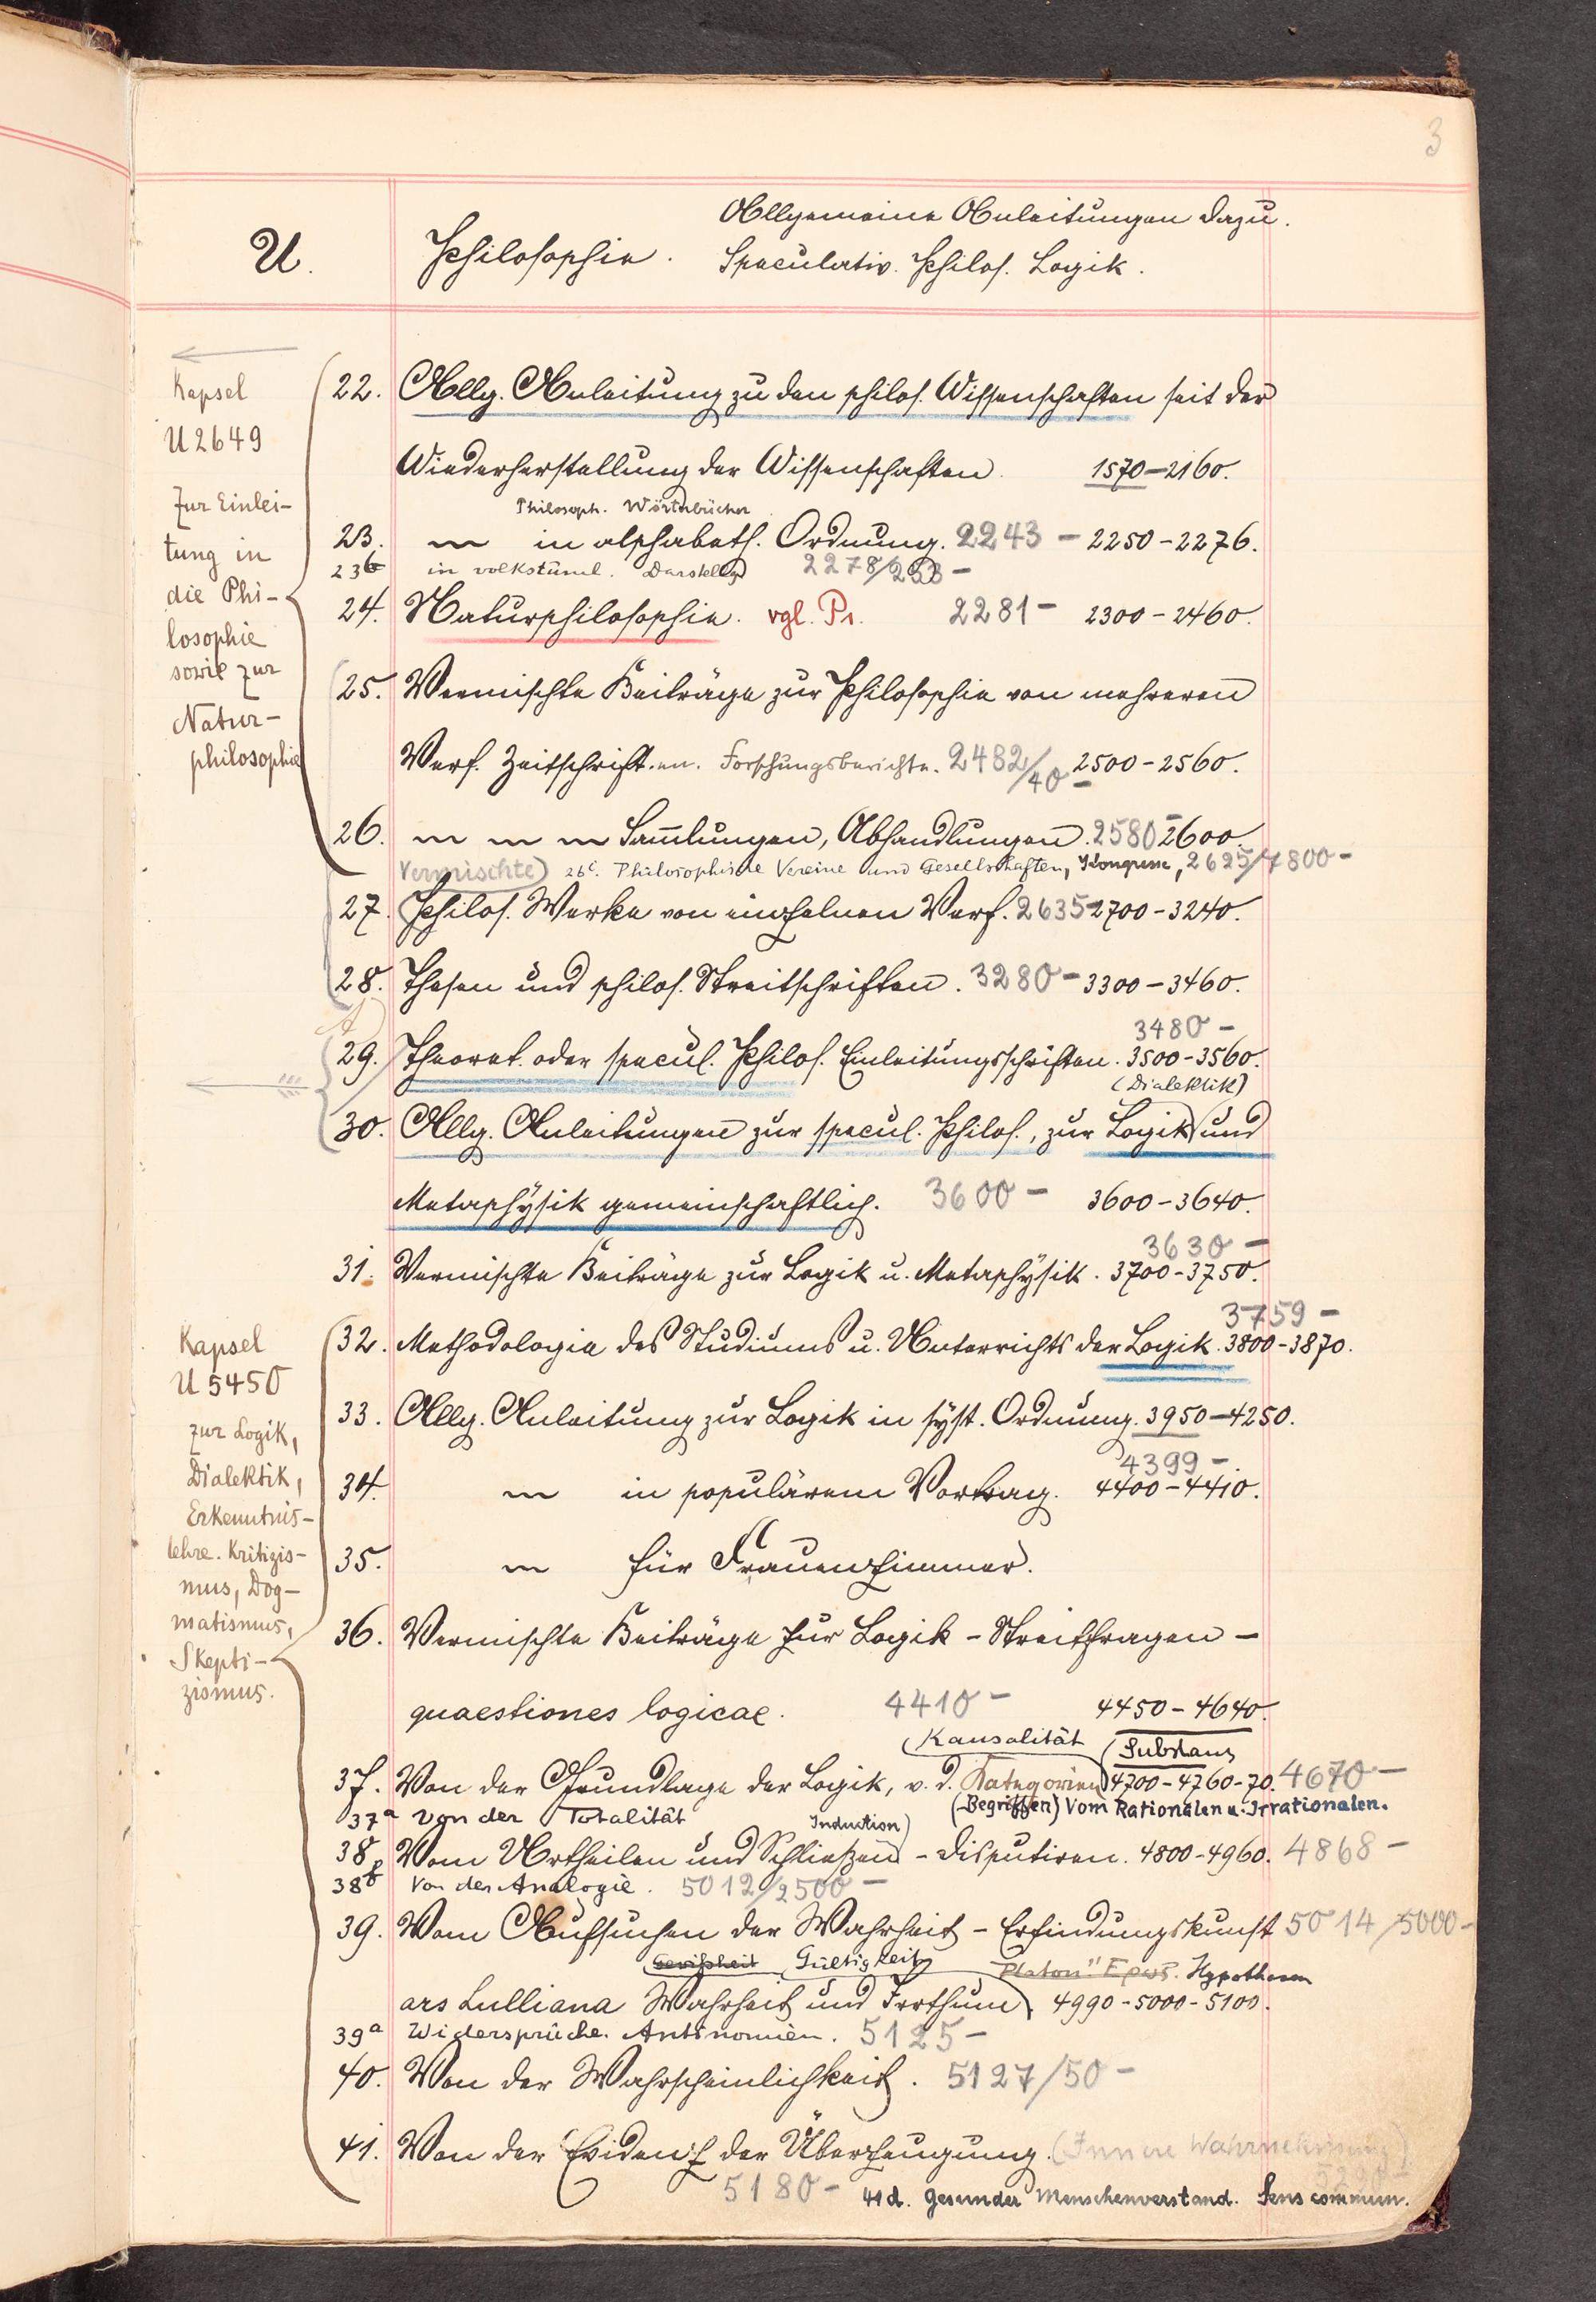 3
U. Philosophie. Allgemeine Anleitungen dazu.
Speculativ. Philos. Logik.
Kapsel
U 2649
Zur Einlei-
tung in
die Phi-
losophie
sowie zur
Natur-
philosophie
22. Allg. Anleitung zu den philos. Wissenschaften seit der
Wiederherstellung der Wissenschaften. 1570-2160.
Philosoph. Wörterbücher
23. in alphabeth. Ordnung. 2243 - 2250-2276.
23b in volkstüml. Darstellg 2278/
24. Naturphilosophie. vgl. Pr. 2281- 2300-2460.
25. Vermischte Beiträge zur Philosophie von mehreren
Verf. Zeitschriften. Forschungsberichte. 2482/40- 2500-2560.
26. Sam̄lungen, Abhandlungen. 2580- 2600.
Vermischte) 26c. Philosophische Vereine und Gesellschaften, Kongresse, 2625/7800-
27. Philos. Werke von einzelnen Verf. 2635- 2700-3240.
28. Thesen und philos. Streitschriften. 3280- 3300-3460.
3480-
29. Theoret. oder specul. Philos. Einleitungsschriften. 3500-3560.
(Dialektik)
30. Allg. Anleitungen zur specul. Philos., zur Logik und
Metaphysik gemeinschaftlich. 3600- 3600-3640.
3630-
31. Vermischte Beiträge zur Logik u. Metaphysik. 3700-3750.
3759-
Kapsel
U 5450
zur Logik,
Dialektik,
Erkenntnis-
lehre. Kritizis-
mus, Dog-
matismus,
Skepti-
zismus.
32. Methodologie des Studiums u. Unterrichts der Logik. 3800-3870.
33. Allg. Anleitung zur Logik in syst. Ordnung. 3950-4250.
4399-
34. in populärem Vortrag. 4400-4410.
35. für Frauenzimmer.
36. Vermischte Beiträge zur Logik - Streitfragen -
quaestiones logicae. 4410- 4450-4640.
(Kausalität (Substanz
37. Von der Grundlage der Logik, v. d. Kategorien) 4700-4760-70. 4670-
(Begriffen) Vom Rationalen u. Irrationalen.
37a Von der Totalität
Induction)
38. Vom Urtheilen und Schließen - Disputiren. 4800-4960. 4868-
38b Von der Analogie. 5012/2500-
39. Vom Aufsuchen der Wahrheit - Erfindungskunst 5014/5000-
Gewißheit Gültigkeit Platon" Ερως. Hypothesen
ars Lulliana Wahrheit und Irrthum 4990-5000-5100.
39a Widersprüche. Antinomien. 5125-
40. Von der Wahrscheinlichkeit. 5127/50-
41. Von der Evidenz der Überzeugung. (Innere Wahrnehmung)
5180- 41d. Gesunder Menschenverstand. Sens commun.